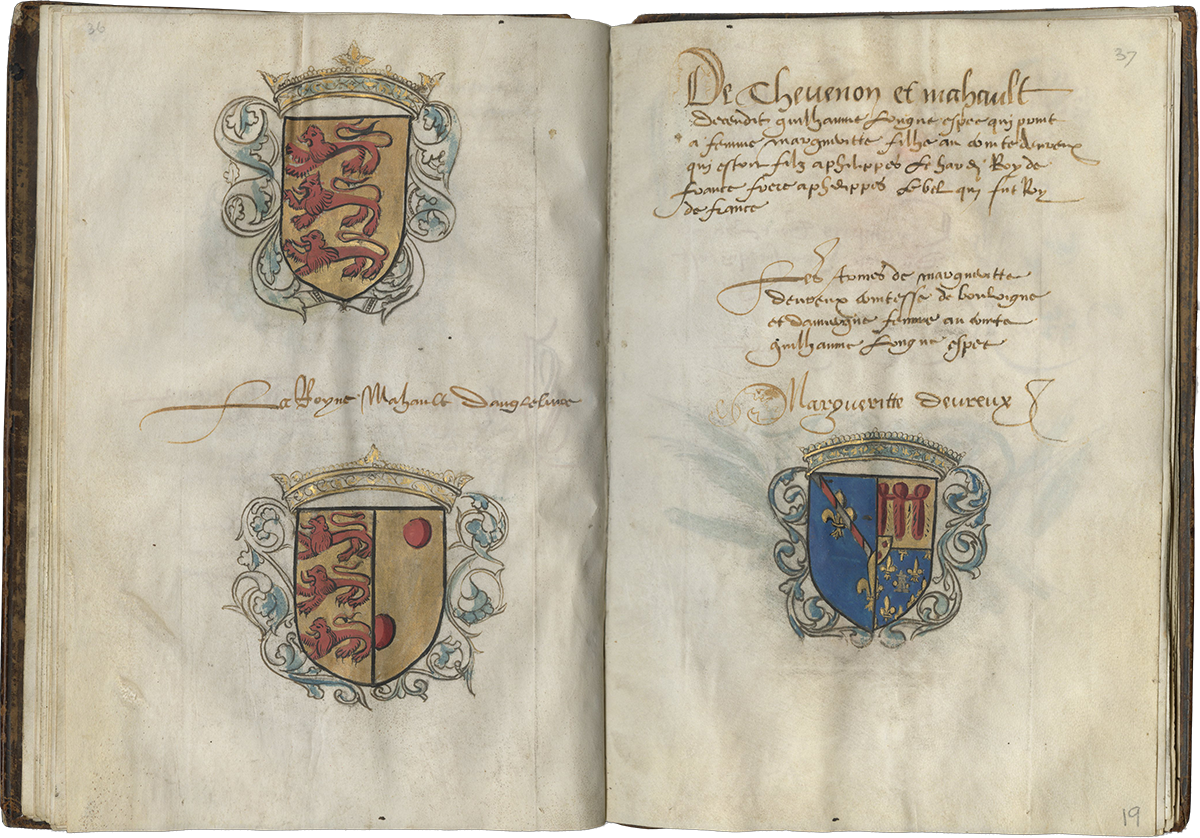 36
La Royne Mahault dangleterre
37
De Thevenon et mahault
decendit guilhaume longue espee qui print
a femme margueritte filhe au comte devreux
qui estoit filz a philippes le hardi Roy de
france frere a philippes le bel qui fut Roy
de france
Les armes de margueritte
devreux comtesse de bouloigne
et dauvergne femme au comte
guilhaume longue espee
Margueritte devreux
19